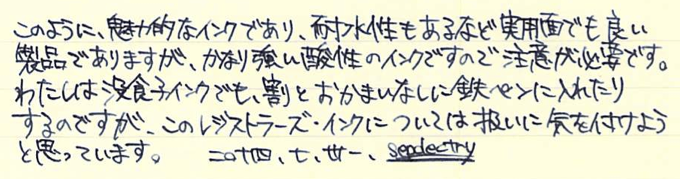 このように、魅力的なインクであり、耐水性もあるなど実用面でも良い
製品でありますが、かなり強い酸性のインクですので注意が必要です。
わたしは没食子インクでも、割とおかまいなしに鉄ペンに入れたり
するのですが、このレジストラーズ・インクについては扱いに気を付けよう
と思っています。 二〇十四、七、廿一、